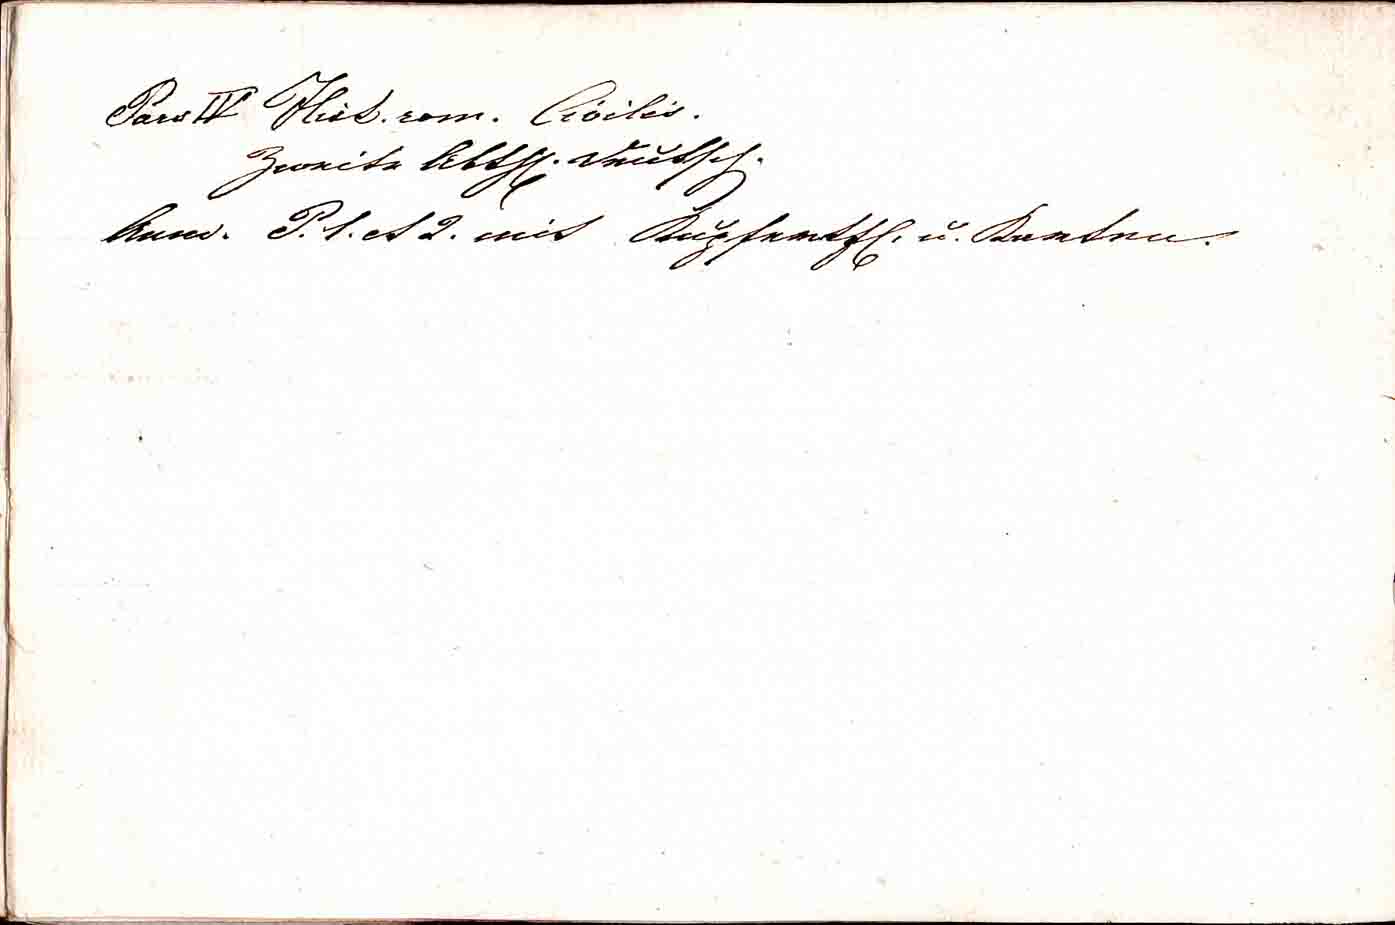 Pars IV Hist. rom. Civilis.
Zweite Abth. Deutsch.
Anm. P. 1. et 2. mit Kupfertfl. u. Karten.